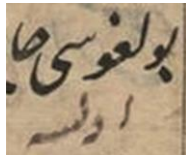 بولغوسی
اولسه